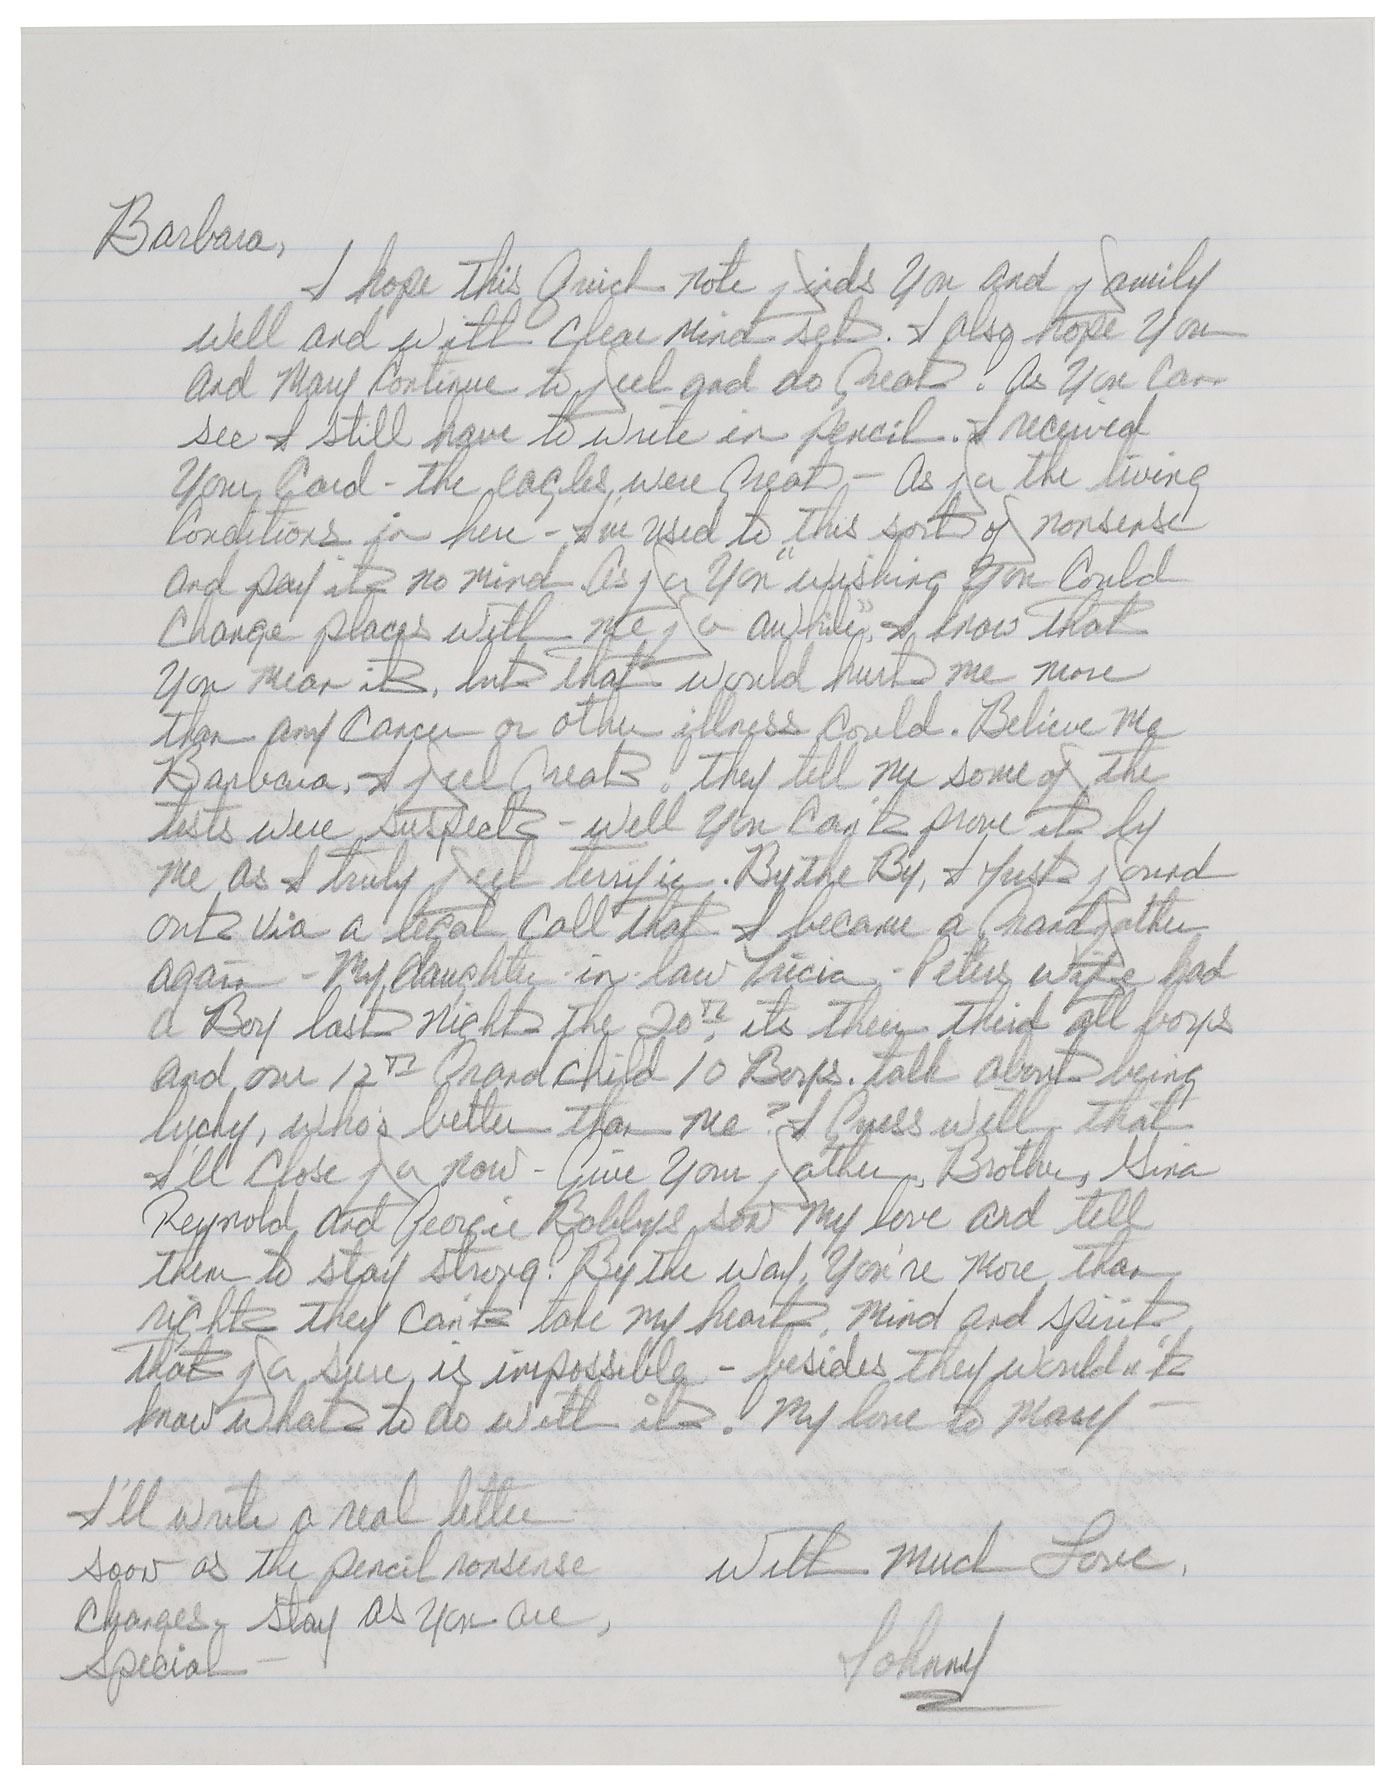 Barbara,
I hope this Quick note finds You and family
well and with Clear Mind set. I also hope You
and Mary Continue to feel and do Great! As You Can
see I still have to write in pencil. I received
Your Card - the eagles were Great - As for the living
Conditions in here - I've used to this sort of nonsense
and pay it no mind. As for You "wishing You Could
Change places with me for awhile", I know that
You mean it, but that would hurt me more
than any Cancer or other illness Could. Believe Me
Barbara, I feel Great! they tell me some of the
tests were suspect - well You Can't prove it by
me as I truly feel terrific. By the By, I Just found
out via a legal Call that I became a Grandfather
again - My daughter-in-law Tricia - Peters wife had
a Boy last Night the 20th, its their third all boys
and our 12th Grandchild 10 Boys. talk about being
lucky, who's better than Me? I Guess well that
I'll Close for now - Give Your father, Brother, Gina
Reynold, and Georgie Bobbys son My love and tell
them to stay strong! By the way, You're More than
right they Can't take My heart, Mind and Spirit,
that for sure is impossible - besides they wouldn't
know what to do with it. My love to Mary -
I'll write a real letter
soon as the pencil nonsense
Changes, Stay as You are,
Special -
With Much Love,
Johnny